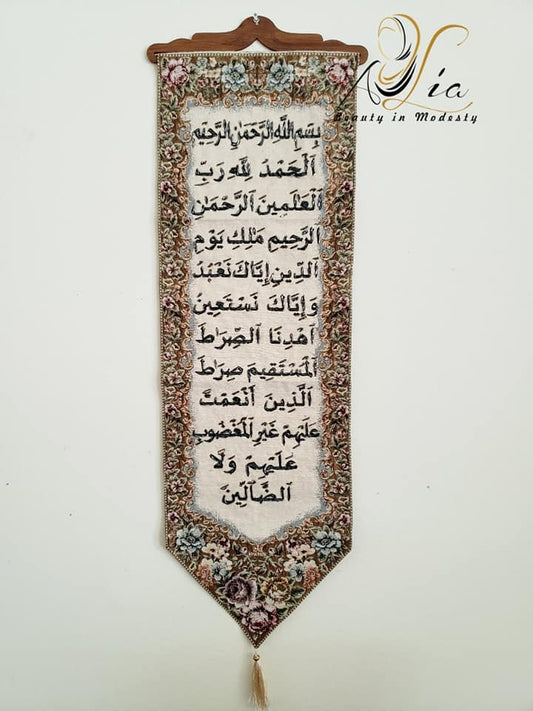 Alia
Beauty in Modesty
بِسْمِ اللَّهِ الرَّحْمَٰنِ الرَّحِيْمِ
اَلْحَمْدُ لِلَّهِ رَبِّ
الْعَالَمِينَ الرَّحْمَٰنِ
الرَّحِيمِ مَالِكِ يَوْمِ
الدِّينِ إِيَّاكَ نَعْبُدُ
وَإِيَّاكَ نَسْتَعِينُ
اَهْدِنَا الصِّرَاطَ
الْمُسْتَقِيمَ صِرَاطَ
الَّذِينَ أَنْعَمْتَ
عَلَيْهِمْ غَيْرِ الْمَغْضُوبِ
عَلَيْهِمْ وَلَا
الضَّآلِّينَ